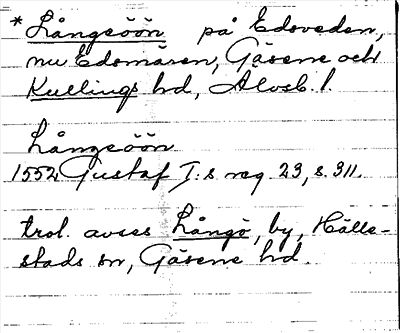 * Långeöön på Edsveden,
nu Edsmären, Gäsene och
Kullings hd, Älvsb. l.
Långeöön
1552 Gustaf I:s reg 23, s. 311.
trol. avses Långö, by, Hälle-
stads sn, Gäsene hd.